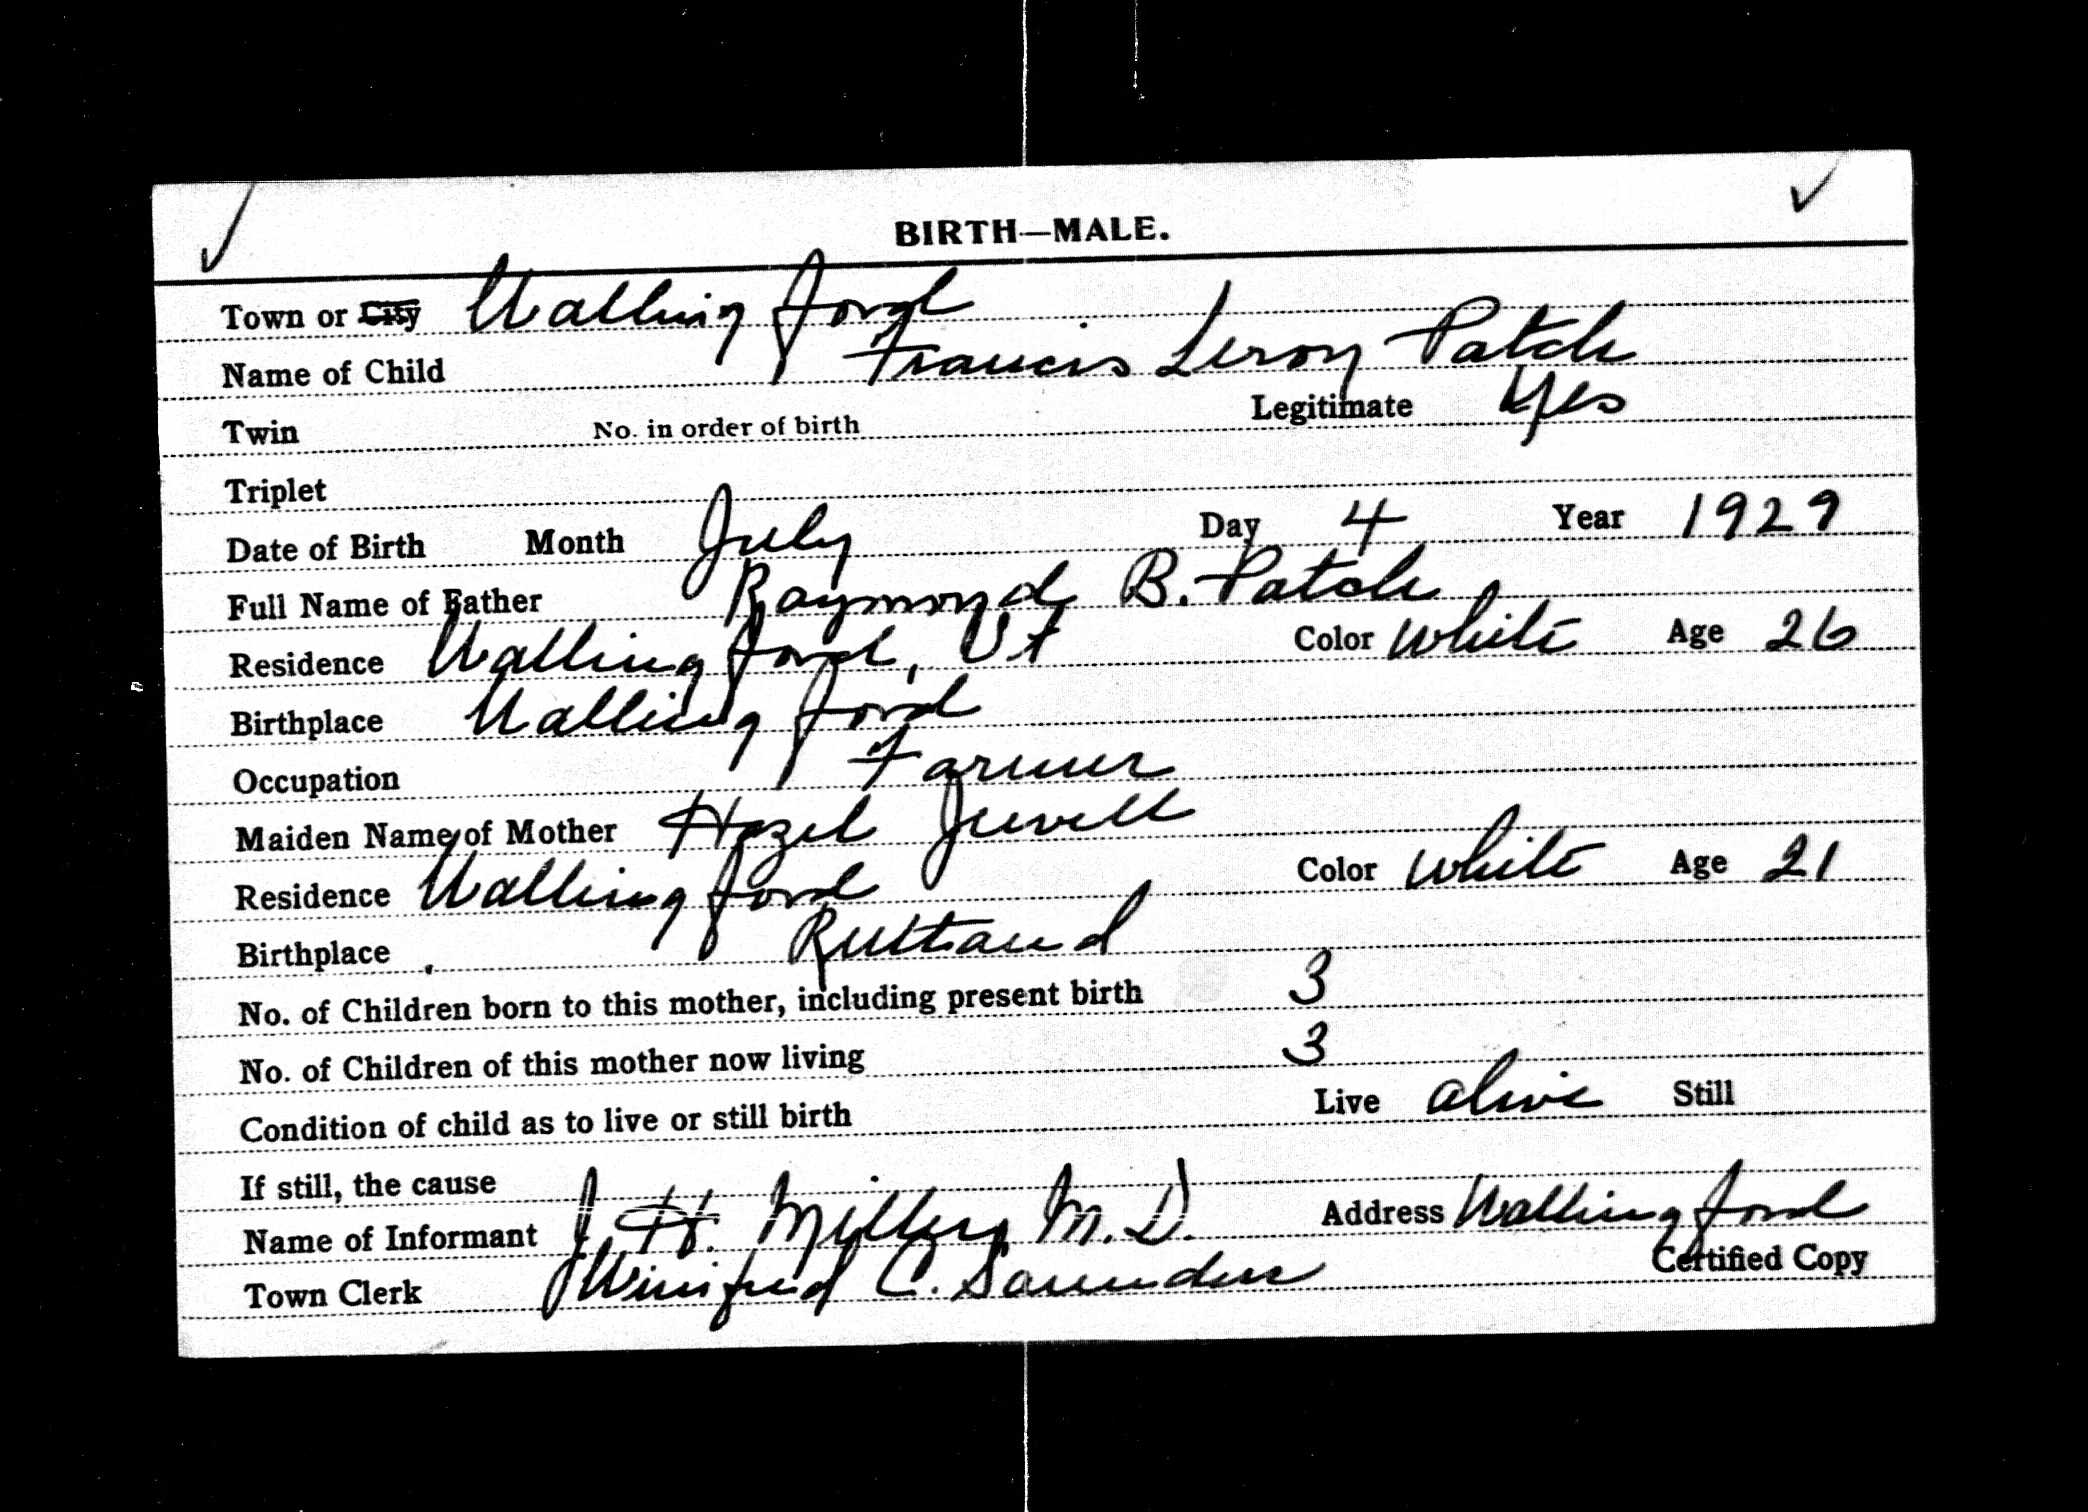 BIRTH—MALE.
Town or City Wallingford
Name of Child Francis Leroy Patch
Twin No. in order of birth Legitimate Yes
Triplet
Date of Birth Month July Day 4 Year 1929
Full Name of Father Raymond B. Patch
Residence Wallingford, Vt Color White Age 26
Birthplace Wallingford
Occupation Farmer
Maiden Name of Mother Hazel Jewell
Residence Wallingford Color White Age 21
Birthplace Rutland
No. of Children born to this mother, including present birth 3
No. of Children of this mother now living 3
Condition of child as to live or still birth Live alive Still
If still, the cause
Name of Informant J H. M. D. Address Wallingford
Town Clerk Winifred C. Saunders Certified Copy